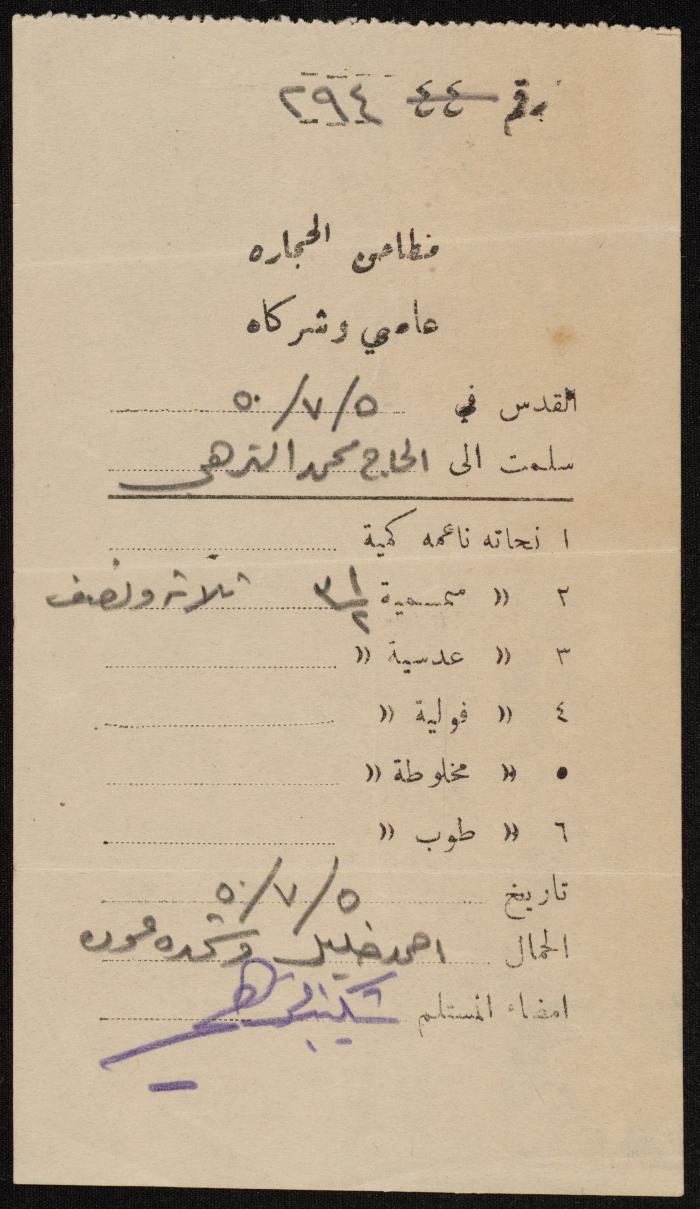 رقم ٤٤ ٢٩٤
مطاحن الحجاره
عاصي وشركاه
القدس في ٥/٧/٥٠
سلمت الى الحاج محمد الترهي
١ نحاته ناعمه كمية
٢ " سمسمية " ٣ ١/٢ ثلاثة ونصف
٣ " عدسية "
٤ " فولية "
٥ " مخلوطة "
٦ " طوب "
تاريخ ٥/٧/٥٠
الحمال احمد خليل
امضاء المستلم